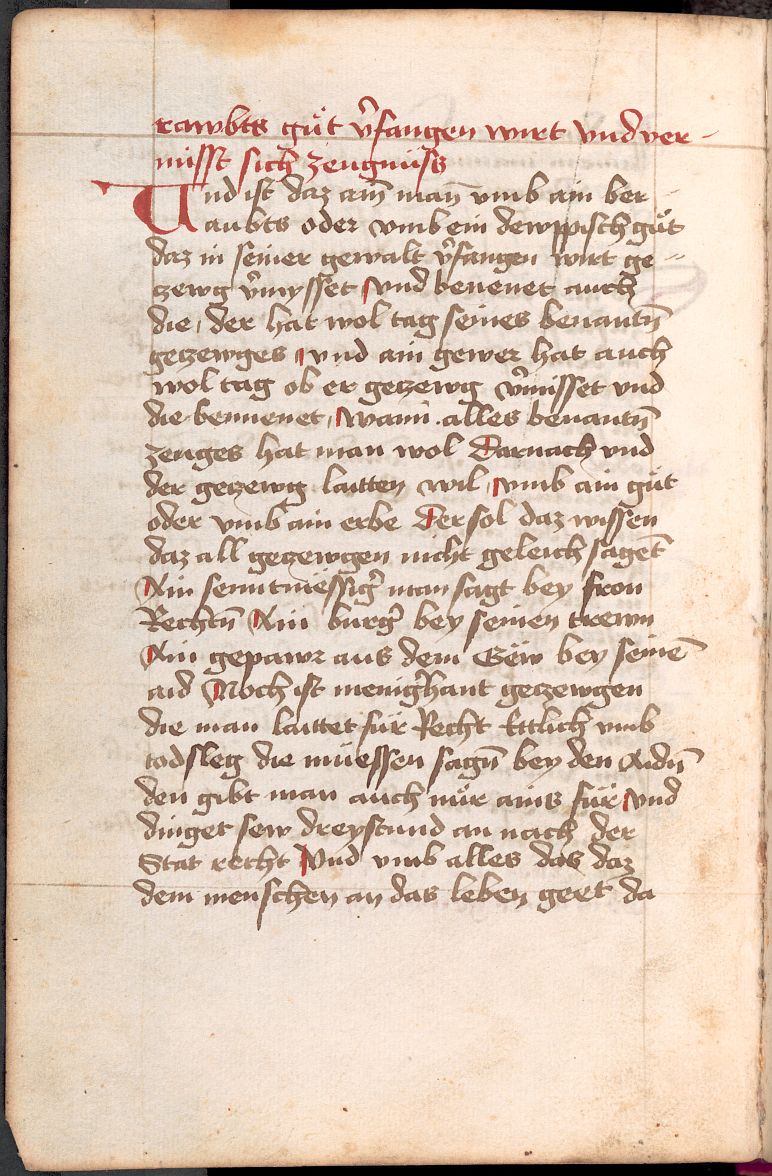 rawbts gůt v̄fangen wirt vnd ver-
misst sich zeugnüss
Und ist daz ain man̄ vmb ain ber-
aubts oder vmb ein dewppisch gůt
daz in seiner gewalt v̄fangen wirt ge-
zewg v̄mysset vnd benenet auch
die, der hat wol tag seines benantn̄
getzewges vnd ain gewer hat auch
wol tag ob er getzewg v̄misset vnd
die bennenet, wann alles benantn̄
zeuges hat man wol Darnach vnd
der getzewg laitten wil, vmb ain gůt
oder vmb ain erbe Der sol daz wissen
daz all getzewgen nicht geleich sagēt
Ain sentmëssigr̄ man sagt bey fron
Rechtn̄ Ain burgr̄ bey seinen trewn
Ain gepawr aus dem Gëw bey seinē
aid Noch ist menigr̄hant getzewgen
die man laittet für Recht Ettlich vmb
todsleg die müessen sagn̄ bey den Aidn̄
den gibt man auch nůr ains für vnd
dinget sew dreystund an nach der
Stat recht Vnd vmb alles das daz
dem menschen an das leben geet da